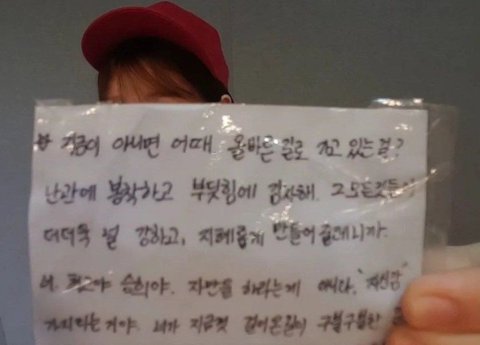 지금이 아니면 어때. 올바른 길로 가고 있는걸?
난관에 봉착하고 부딪힘에 감사해. 그 모든것들이
더더욱 널 강하고, 지혜롭게 만들어 줄테니까.
너. 최고야 슬희야. 자만을 하라는게 아니다. "자신감"
가지라는거야. 네가 지금껏 걸어온길이 구불구불한